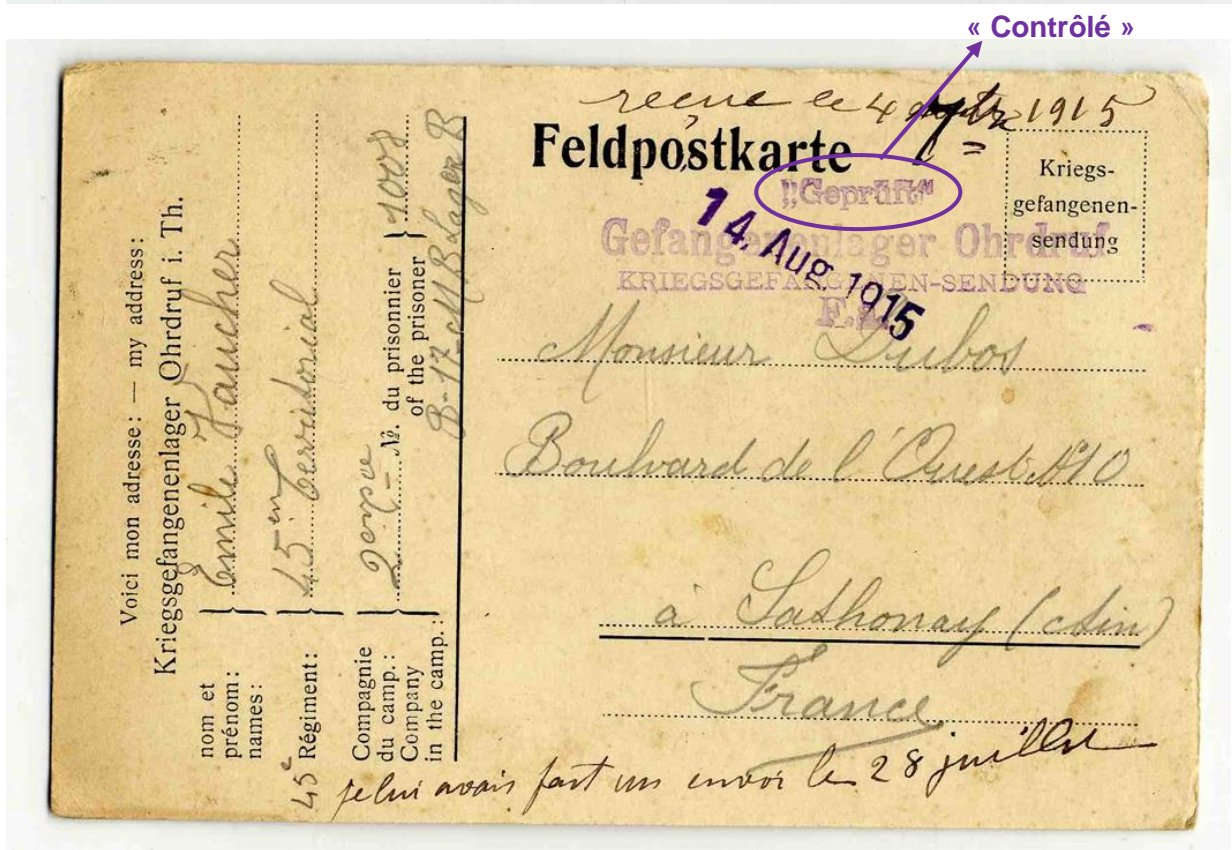 « Contrôlé »
reçue le 4 1915
Feldpostkarte
Kriegs-
gefangenen-
sendung
„Geprüft“
Gefangenenlager Ohrdruf
KRIEGSGEFANGENEN-SENDUNG
14. Aug. 1915
Monsieur Dubos
Boulvard de l'Ouest
à Sathonay (Ain)
France
je lui avais fait un envoi le 28 juillet
Voici mon adresse: — my address:
Kriegsgefangenenlager Ohrdruf i. Th.
nom et
prénom:
names:
Emile Faucher
45e Régiment:
45em Territorial
Compagnie
du camp.:
Company
in the camp.:
№. du prisonnier
of the prisoner
1008
B-17 Lager B